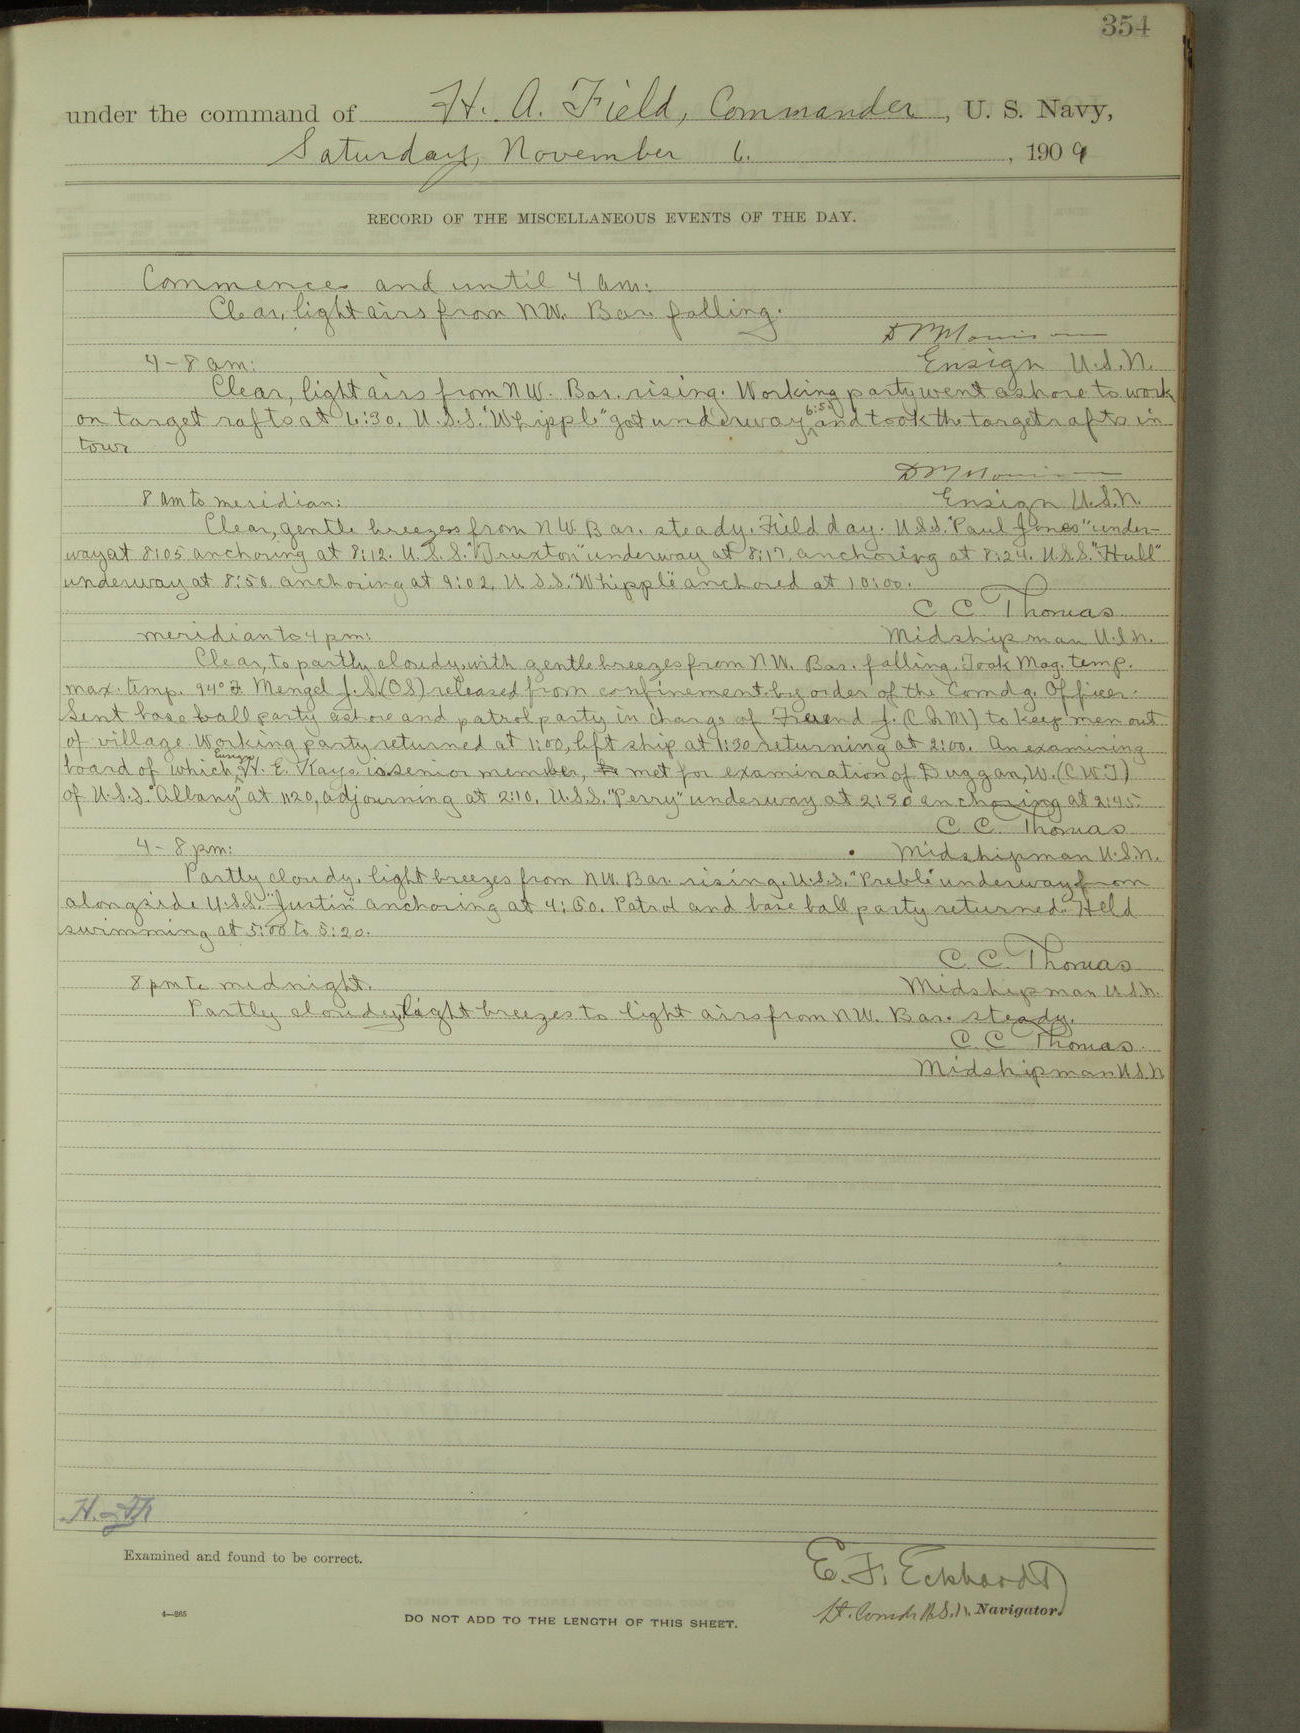 354
under the command of H. A. Field, Commander, U. S. Navy,
Saturday, November 6. , 1909
RECORD OF THE MISCELLANEOUS EVENTS OF THE DAY.
Commences and until 4 am:
Clear, light airs from NW. Bar. falling.
4-8 am:
Ensign U.S.N.
Clear, light airs from NW. Bar. rising. Working party went ashore to work
on target rafts at 6:30. U.S.S. "Whipple" got underway 6:54 and took the target rafts in
tow.
8 am to meridian:
Ensign U.S.N.
Clear, gentle breezes from NW. Bar. steady. Field day. U.S.S. "Paul Jones" under-
way at 8:05 anchoring at 8:12. U.S.S. "Truxton" underway at 8:17, anchoring at 8:24. U.S.S. "Hull"
underway at 8:50 anchoring at 9:02. U.S.S. "Whipple" anchored at 10:00.
C C Thomas
meridian to 4 pm:
Midshipman U.S.N.
Clear, to partly cloudy, with gentle breezes from NW. Bar. falling. Took Mag. temp.
max. temp. 94° F. Mengel J.S. (OS) released from confinement by order of the Comdg. Officer.
Sent base ball party ashore and patrol party in charge of Freund J. (CGM) to keep men out
of village. Working party returned at 1:00, left ship at 1:30 returning at 2:00. An examining
board of which, Ensign H. E. Kays is senior member, met for examination of Duggan, W. (CWT)
of U.S.S. "Albany" at 1:20, adjourning at 2:10. U.S.S. "Perry" underway at 2:30 anchoring at 2:45.
C. C. Thomas
4-8 pm:
Midshipman U.S.N.
Partly cloudy, light breezes from NW. Bar. rising. U.S.S. "Preble" underway from
alongside U.S.S. "Justin" anchoring at 4:50. Patrol and base ball party returned. Held
swimming at 5:00 to 5:20.
C. C. Thomas
8 pm to midnight.
Midshipman U.S.N.
Partly cloudy, light breezes to light airs from NW. Bar. steady.
C. C. Thomas
Midshipman U.S.N.
Examined and found to be correct.
E. F. Eckhardt
Lt. Comdr. U.S.N. Navigator.
4—265
DO NOT ADD TO THE LENGTH OF THIS SHEET.